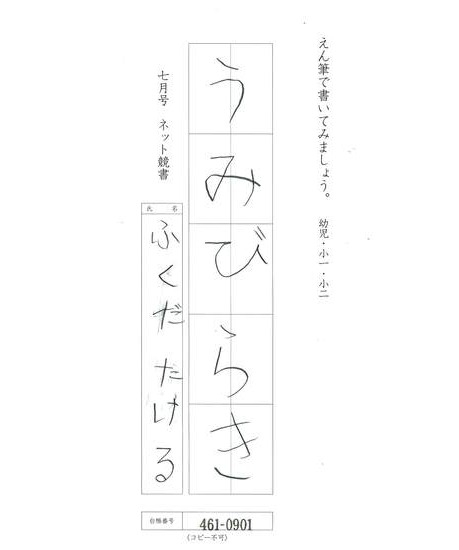 えん筆で書いてみましょう。 幼児・小一・小二
うみびらき
七月号 ネット競書
氏名
ふくだ たける
台帳番号 461-0901
(コピー不可)